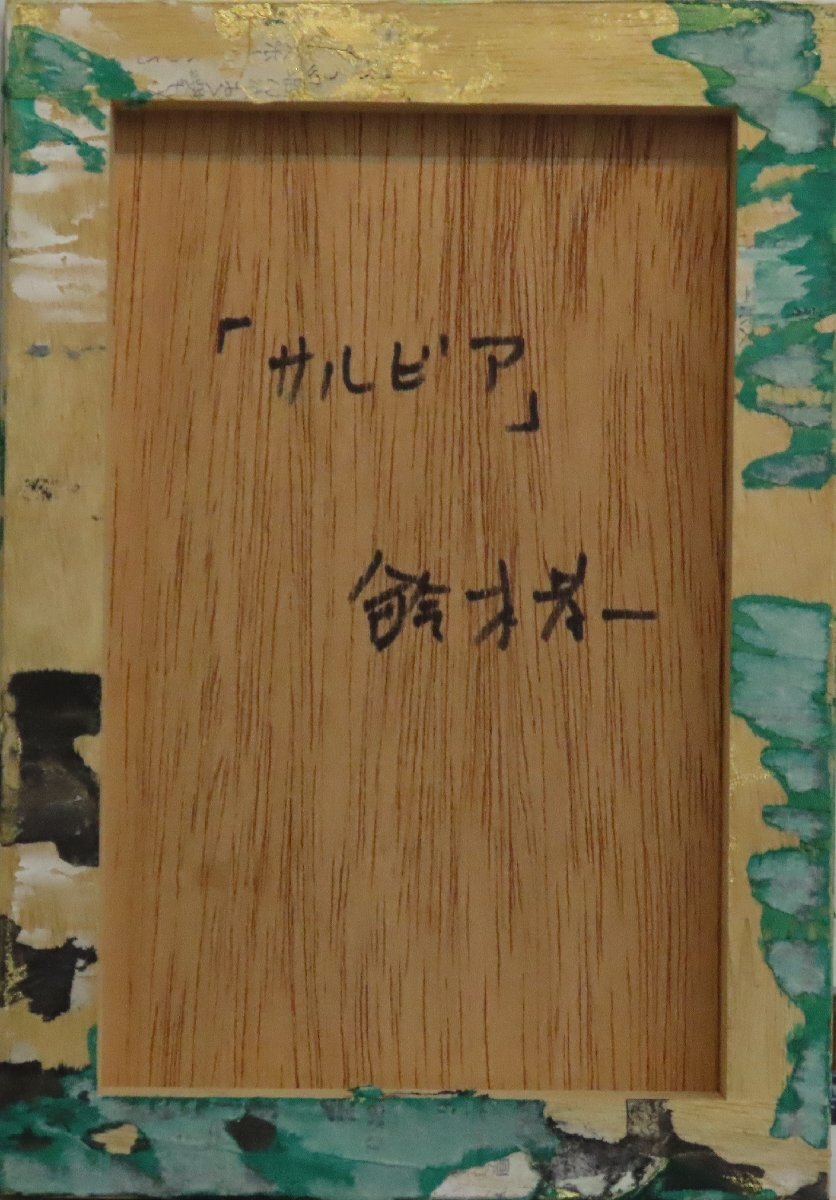 「サルビア」
鈴木孝一